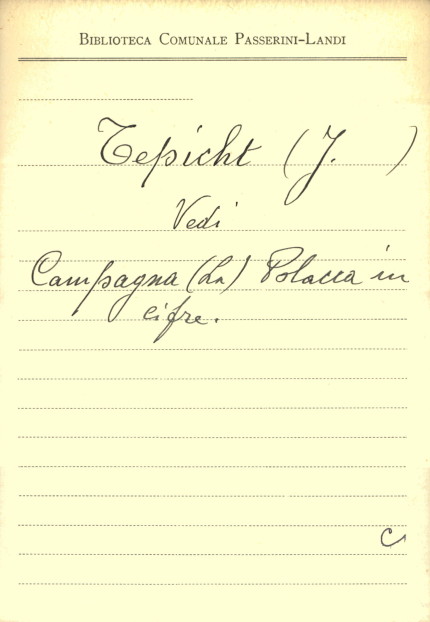 Biblioteca Comunale Passerini-Landi
Tepicht (J. )
Vedi
Campagna (La) Polacca in
cifre.
C